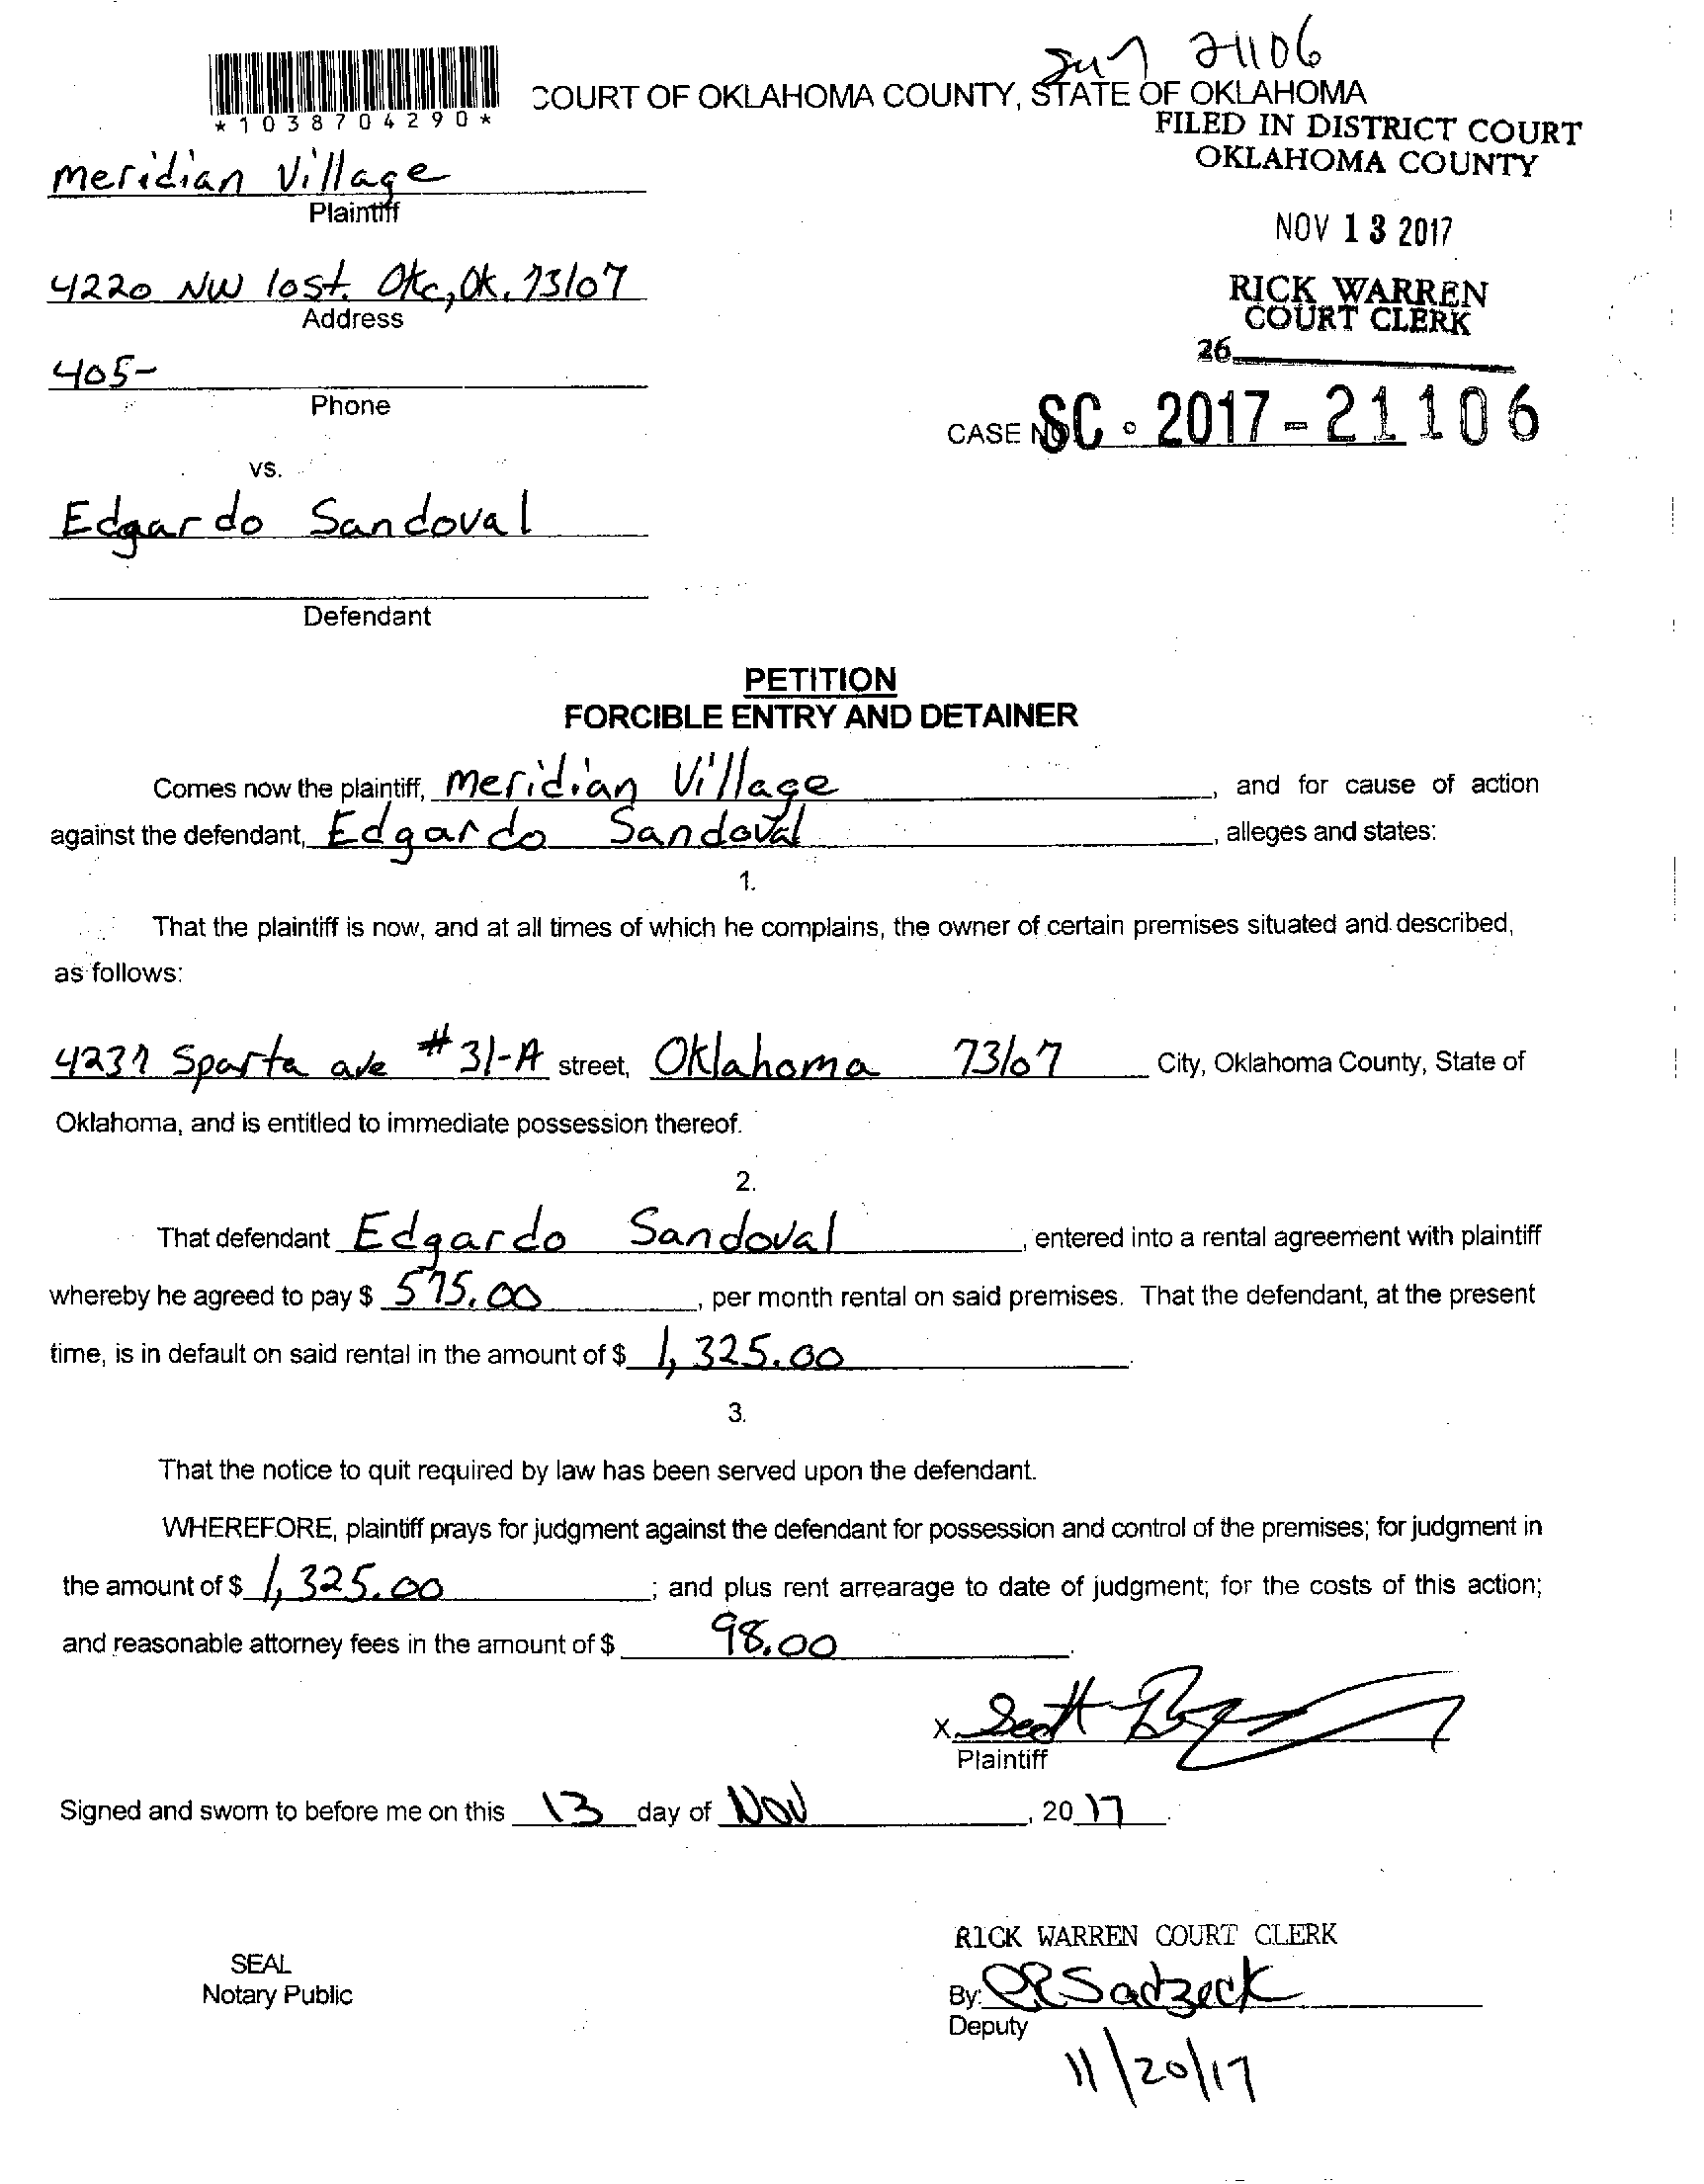 Jun 21106
*1038704290*
COURT OF OKLAHOMA COUNTY, STATE OF OKLAHOMA
FILED IN DISTRICT COURT
OKLAHOMA COUNTY
meridian Village
Plaintiff
NOV 13 2017
4220 NW 10st. Okc, Ok. 73107
Address
RICK WARREN
COURT CLERK
26
405-
Phone
CASE NO SC-2017-21106
vs.
Edgardo Sandoval
Defendant
PETITION
FORCIBLE ENTRY AND DETAINER
Comes now the plaintiff, meridian Village, and for cause of action
against the defendant, Edgardo Sandoval, alleges and states:
1.
That the plaintiff is now, and at all times of which he complains, the owner of certain premises situated and described,
as follows:
4237 Sparta ave #31-A street, Oklahoma 73107 City, Oklahoma County, State of
Oklahoma, and is entitled to immediate possession thereof.
2.
That defendant Edgardo Sandoval, entered into a rental agreement with plaintiff
whereby he agreed to pay $ 575.00, per month rental on said premises. That the defendant, at the present
time, is in default on said rental in the amount of $ 1,325.00.
3.
That the notice to quit required by law has been served upon the defendant.
WHEREFORE, plaintiff prays for judgment against the defendant for possession and control of the premises; for judgment in
the amount of $ 1,325.00; and plus rent arrearage to date of judgment; for the costs of this action;
and reasonable attorney fees in the amount of $ 98.00.
X Scott
Plaintiff
Signed and sworn to before me on this 13 day of Nov, 2017.
RICK WARREN COURT CLERK
SEAL
Notary Public
By: Sadzeck
Deputy
11/20/17